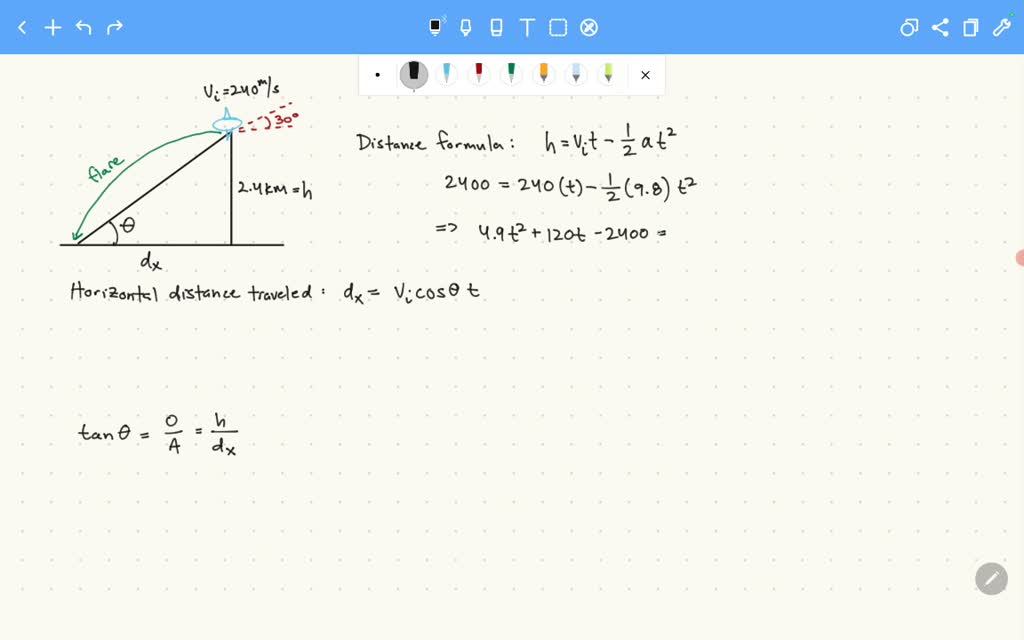 Vi = 240 m/s
30°
flare
2.4km = h
θ
dx
Distance formula: h = Vit - 1/2 at²
2400 = 240(t) - 1/2 (9.8) t²
=> 4.9t² + 120t - 2400 =
Horizontal distance traveled: dx = Vi cosθ t
tan θ = O/A = h/dx